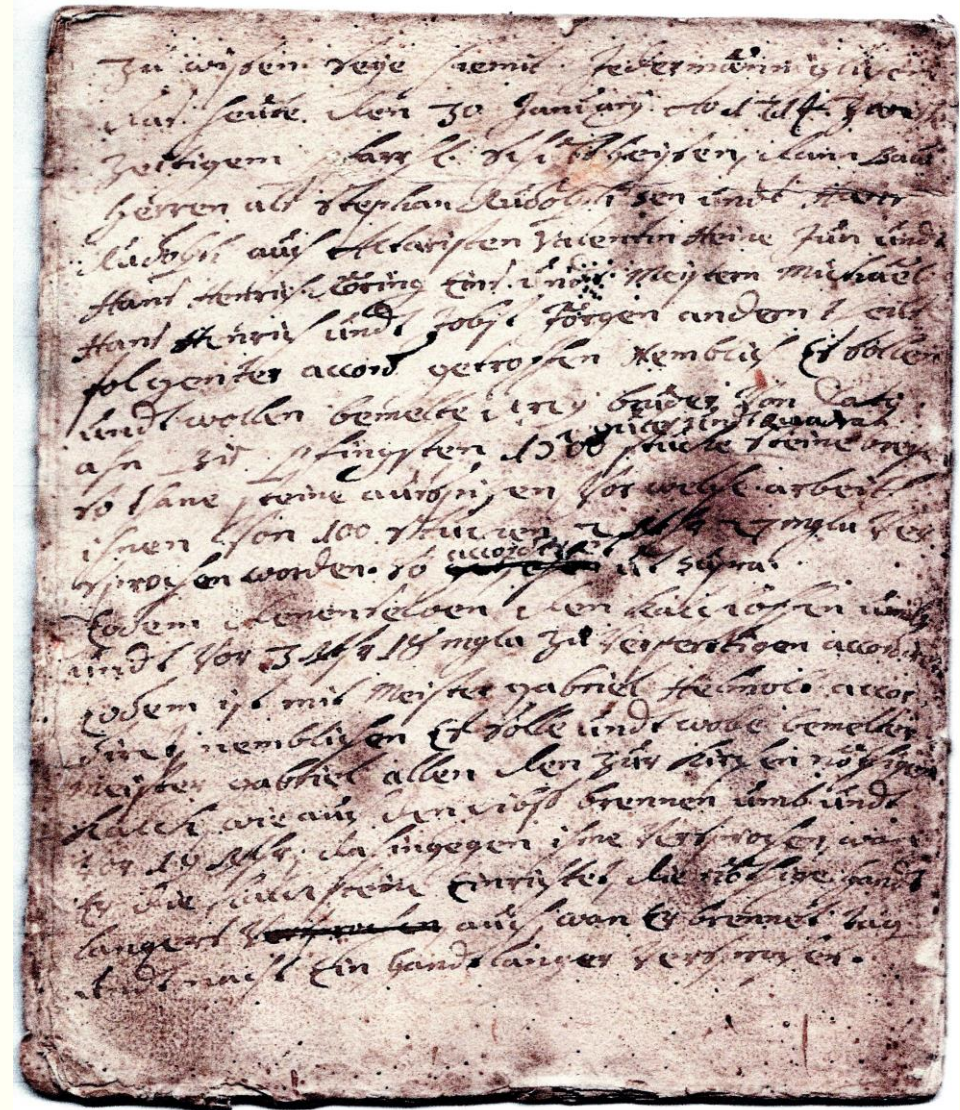 Zu wißen seye hiemit Jedermänniglichen
das heute den 30 January 1714
Zeitigem Pfarr H. Baw
Herren alß Stephan Rudolph Sen undt Hanß
Rudolph auch Altaristen Valentin Heine Jun undt
Hanß Henrich Löring Eins undt Meistern Michael
Hanß Henrich undt Jobst Jörgen andern theilß
folgender accord getroffen Nemblich Es sollen
undt wollen bemelte drey brüder von Dato
ahn biß Pfingsten 1700 stücke steine
guter undt quadrat
so lane steine außhawen vor welche arbeit
ihnen von 100 stücken 2 Rthr 27 mgl ver
sprochen worden. so accordirt ut supra.
Eodem denenselben den Kalckoffen
undt vor 3 Rthr 18 mgl zu verfertigen
Eodem ist mit Meister Gabriel accor
diret nemblichen Es solle undt wolle bemelter
Meister Gabriel allen den zur Kirchen nöthigen
Kalck wie auch den brennen umb undt
vor 19 Rthr, dahingegen ihne versprochen, wan
Er die Kalcksteine Einrichtet die nöthige handt
langers versprochen auch wan Er brennet tag
undt nacht Ein handtlanger versprochen.